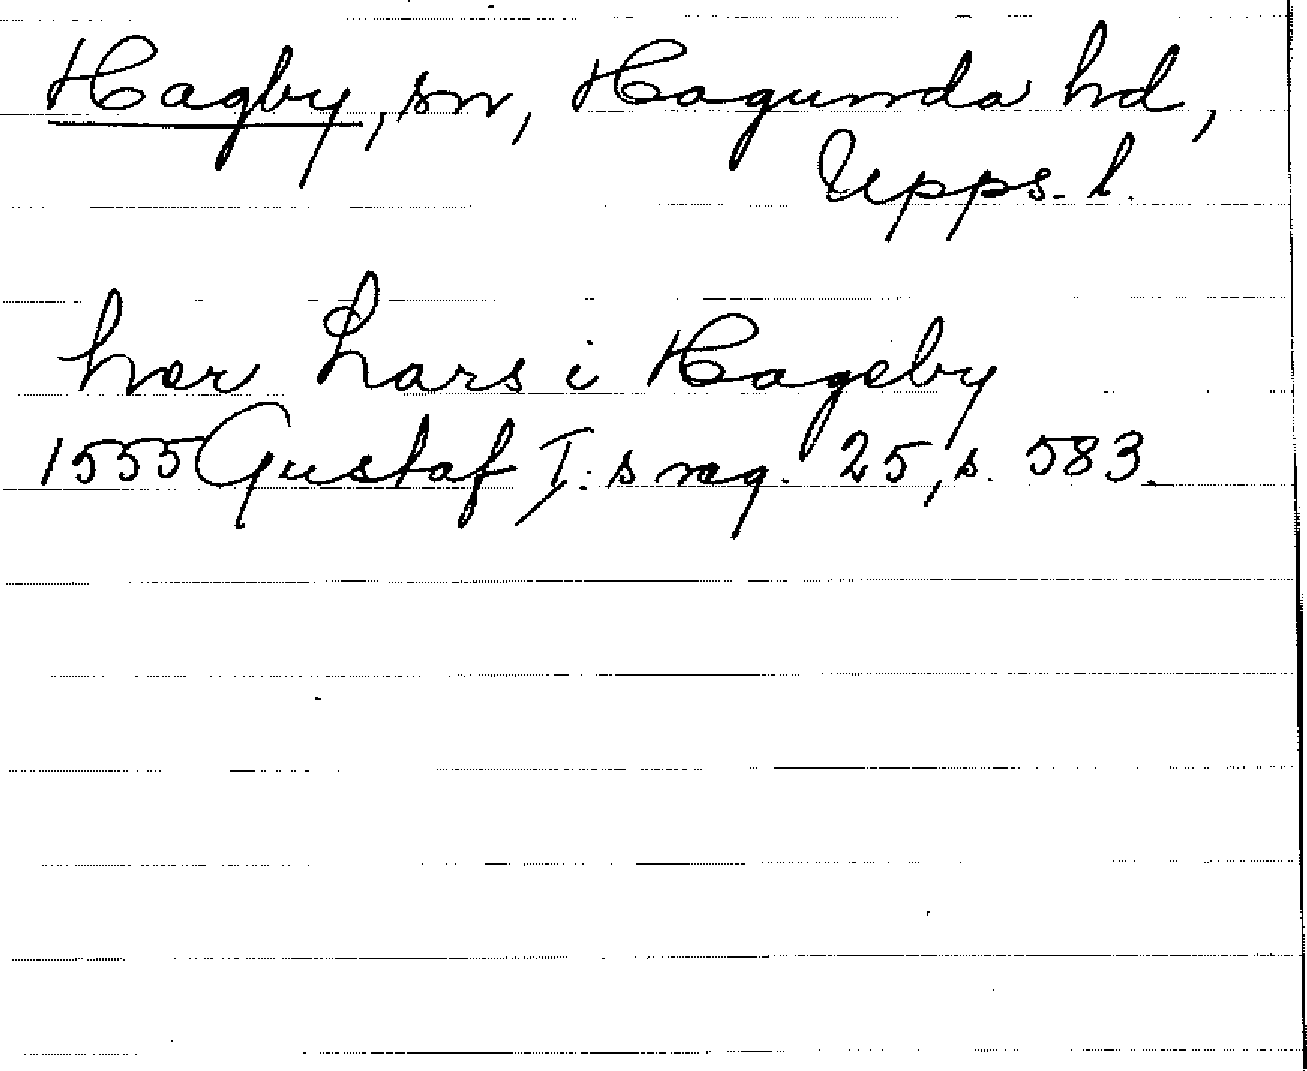 Hagby, sn, Hagunda hd,
Upps. l.
her Lars i Hageby
1555 Gustaf I:s reg. 25, s. 583.